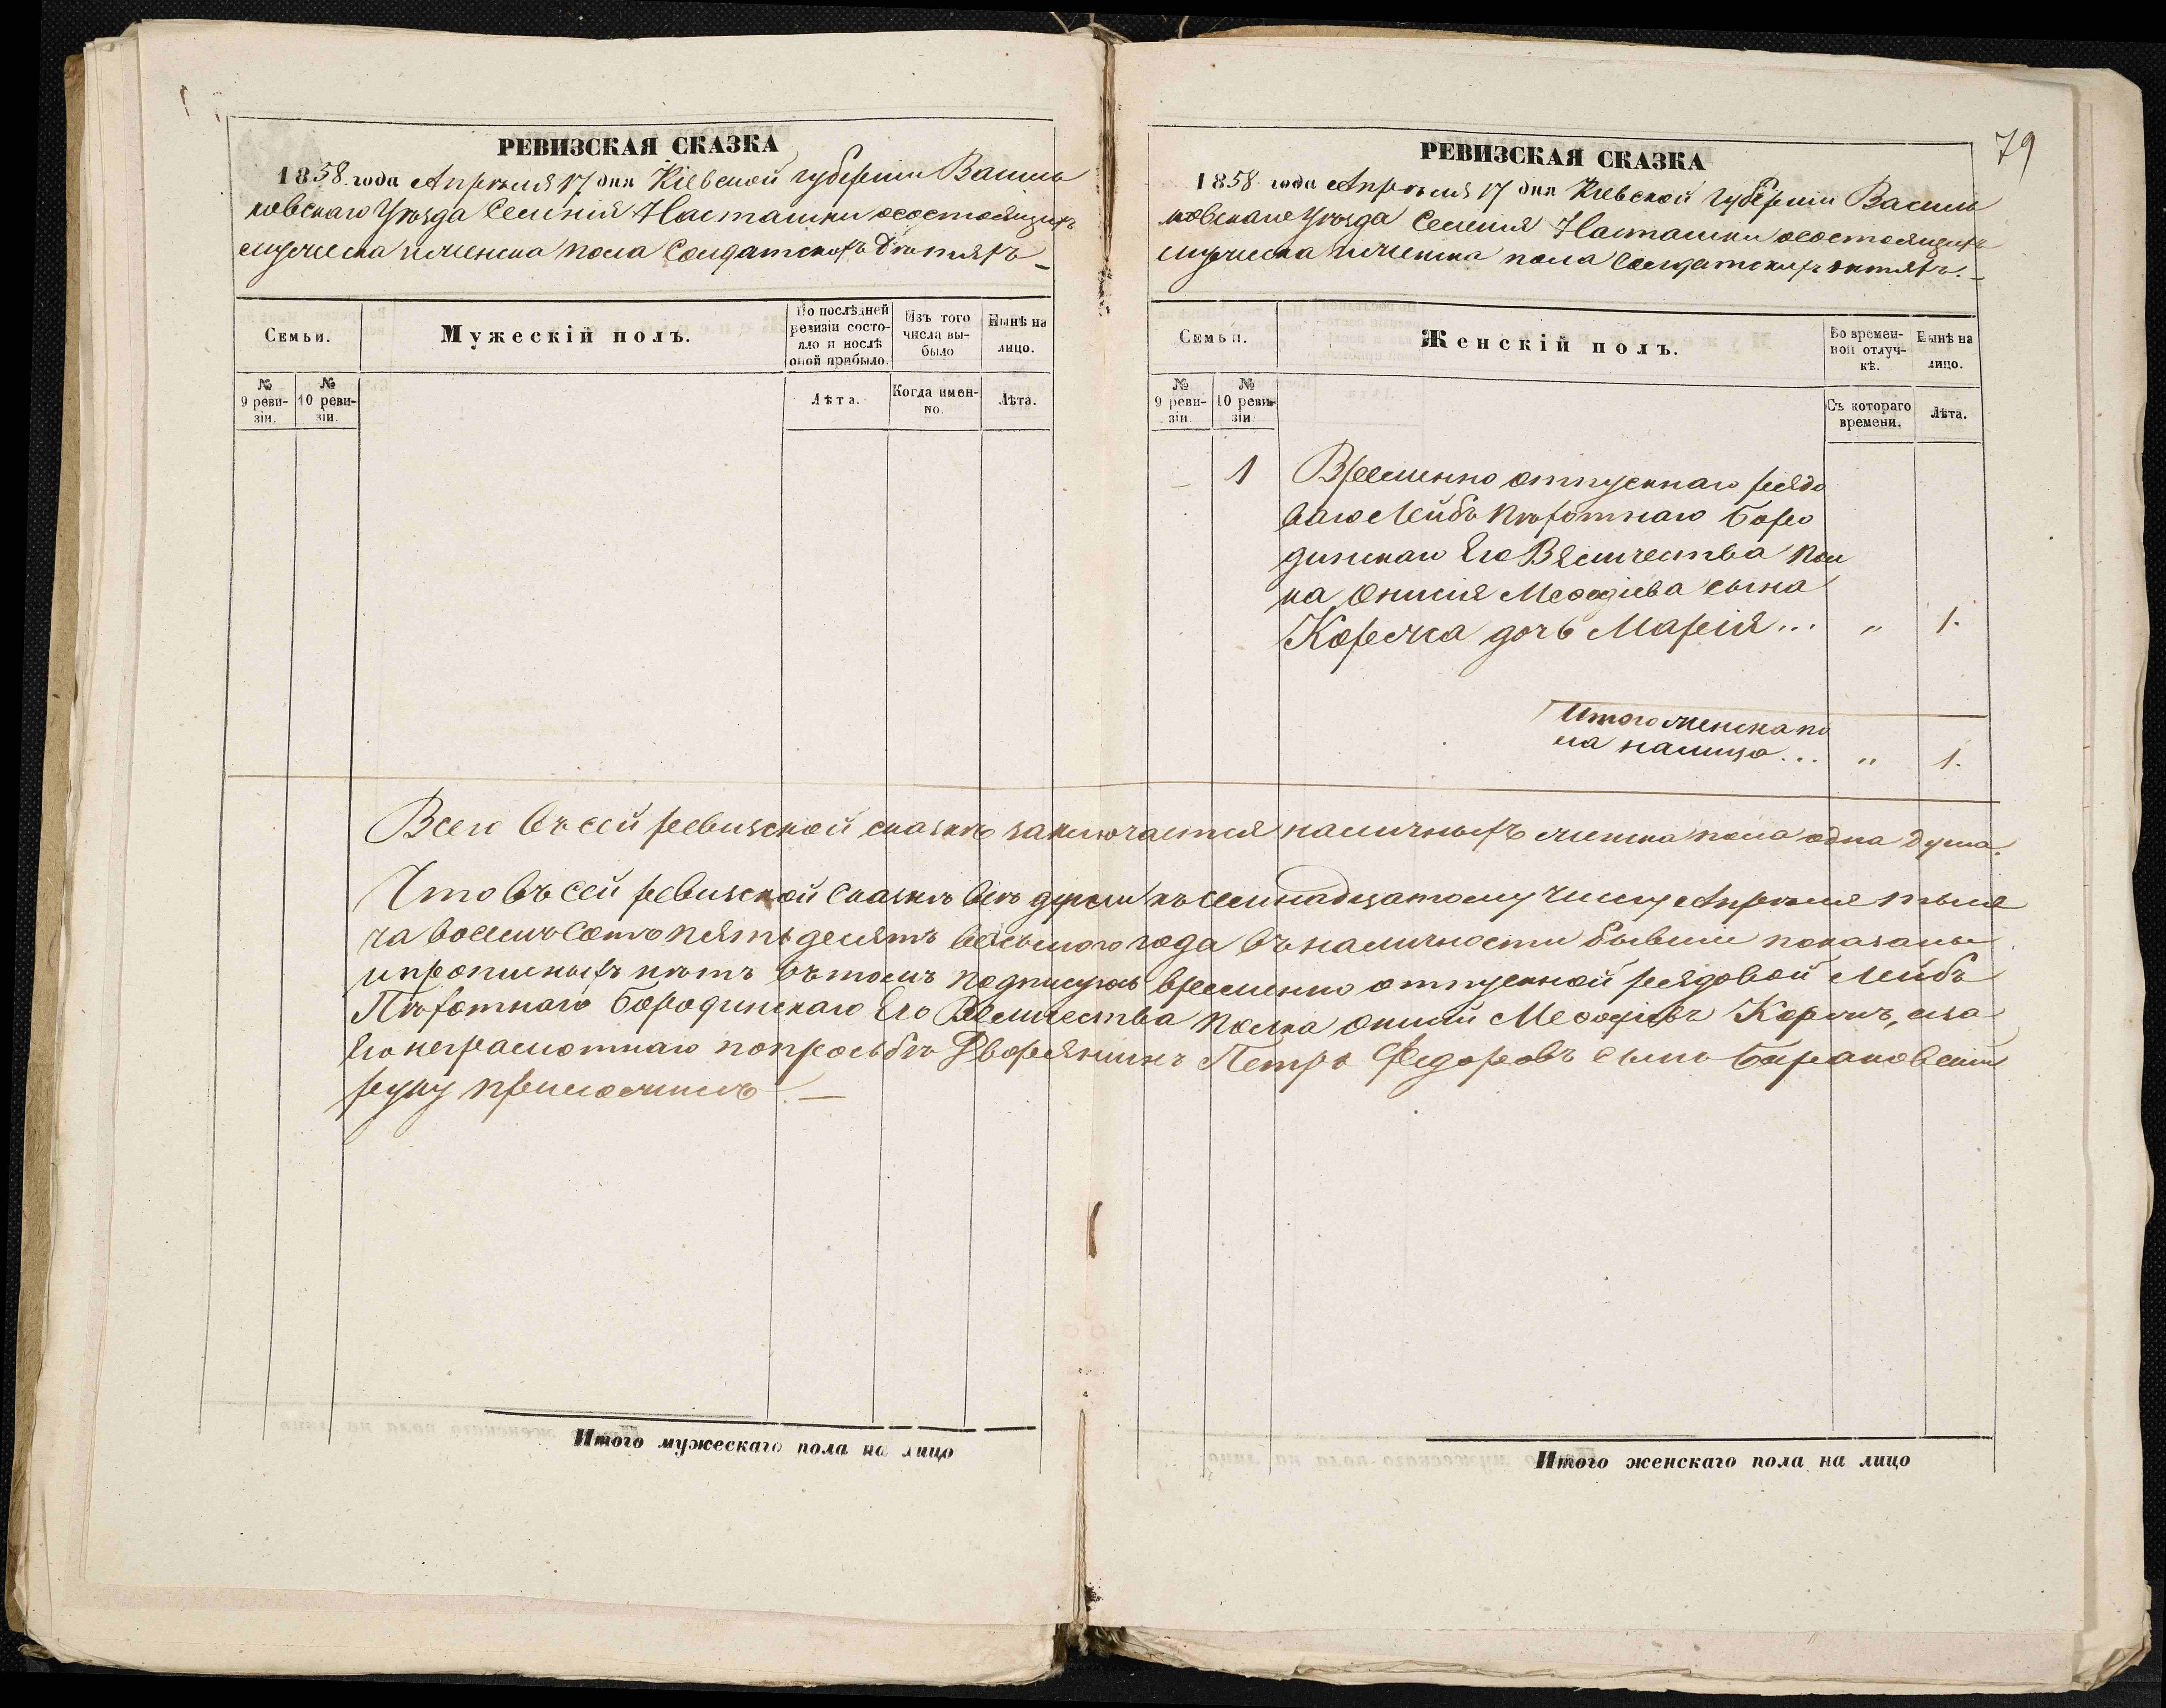 РЕВИЗСКАЯ СКАЗКА
1858 года Апрѣля 17 дня Кіевской губерніи Василь
ковскаго Уѣзда Селенія Насташки осостоящихъ
мужеска иженска пола Солдатскихъ дѣтяхъ
Семьи.
Мужескій полъ.
По послѣдней ревизіи состояло и послѣ оной прибыло.
Изъ того числа выбыло
Нынѣ на лицо.
№ 9 ревизіи.
№ 10 ревизіи.
Лѣта.
Когда именно.
Лѣта.
79
РЕВИЗСКАЯ СКАЗКА
1858 года Апрѣля 17 дня Кіевской Губерніи Василь
ковскаго Уѣзда Селенія Насташки осостоящихъ
мужеска иженска пола Солдатскихъ дѣтяхъ.
Семьи.
Женскій полъ.
Во временной отлучкѣ.
Нынѣ на лицо.
№ 9 ревизіи.
№ 10 ревизіи.
Съ котораго времени.
Лѣта.
– 1 Временно отпускнаго рядо
ваго Лейбъ Пѣхотнаго Боро
динскаго Его Величества Пол
ка Онисія Меѳодіева сына
Коржа дочь Марія... " 1.
Итого женска по
ла налицо... " 1.
Всего въ сей ревизской сказкѣ заключается наличныхъ женска пола одна душа.
Что въ сей ревизской Сказкѣ всѣ души къ семнадцатому числу Апрѣля тыся
ча восемь сотъ пятьдесятъ восьмого года въ наличности бывшія показаны
и прописныхъ нѣтъ въ томъ подписуюсь временно отпускной рядовой Лейбъ
Пѣхотнаго Бородинскаго Его Величества Полка Онисій Меѳодіевъ Коржъ, а за
Его неграмотнаго по просьбѣ Дворянинъ Петръ Федоровъ сынъ Барановскій
руку приложилъ. —
Итого мужескаго пола на лицо
Итого женскаго пола на лицо